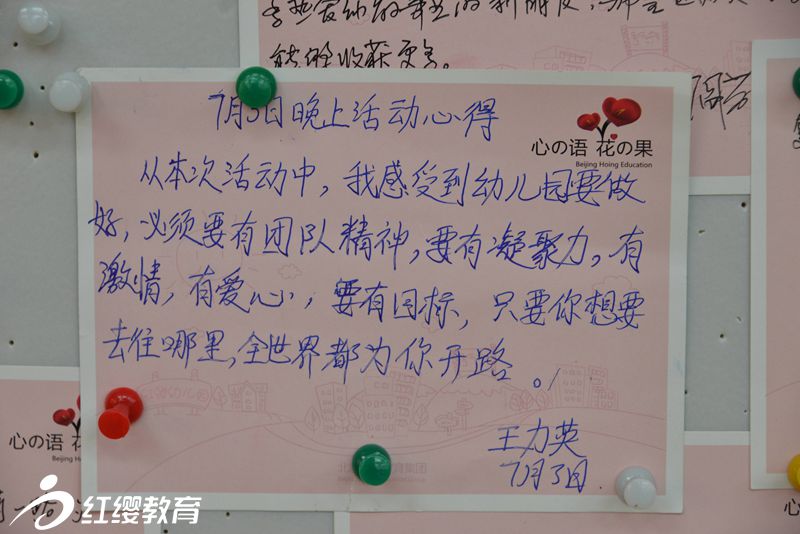 能够收获更多。
7月3日晚上活动心得
心の语 花の果
Beijing Hoing Education
从本次活动中,我感受到幼儿园要做
好,必须要有团队精神,要有凝聚力,有
激情,有爱心,要有目标,只要你想要
去往哪里,全世界都为你开路。
王力英
7月3日
心の语 花の果
Beijing Hoing Education
红缨教育
心の